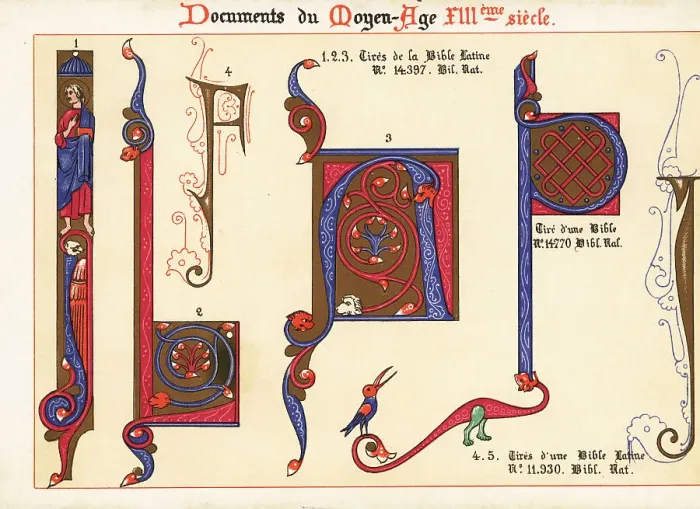 Documents du Moyen-Age XIIIème siècle.
1
4
1.2.3. Tirés de la Bible Latine
No. 14.397. Bib. Nat.
3
Tiré d'une Bible
No. 14770 Bibl. Nat.
2
4.5. Tirés d'une Bible Latine
No. 11.930. Bibl. Nat.